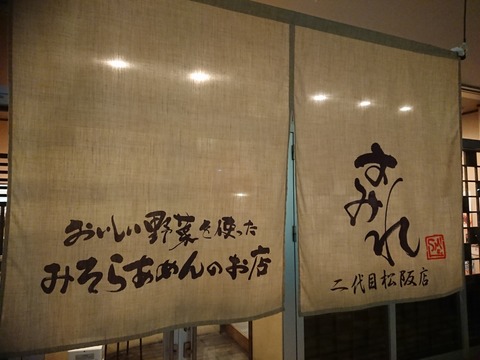 おいしい野菜を使った
みそらあめんのお店
すみれ
二代目松阪店